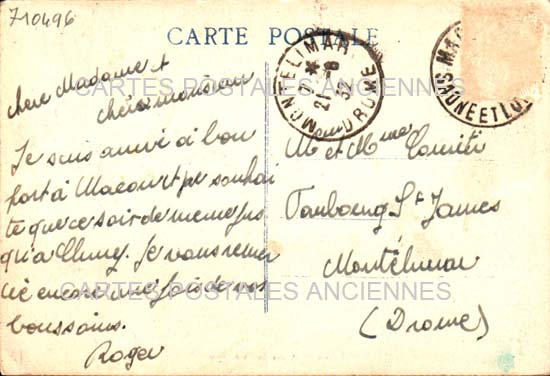 710496
CARTE POSTALE
MONTELIMAR
21 -8 32
DROME
SAONE ET LOIRE
chère Madame et
cher monsieur
Je suis arrivé à bon
port à Macon et je souhai
te que ce soir de meme jus
qu'a Cluny. Je vous remer
cie encore une fois de vos
bons soins.
Roger
Mr et Mme
Faubourg St James
Montélimar
(Drome)
CARTES POSTALES ANCIENNES
CARTES POSTALES ANCIENNES